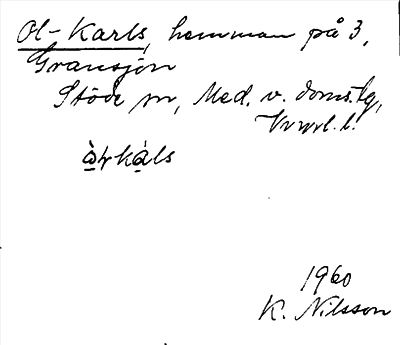 Ol-Karls, hemman på 3,
Gransjön
Stöde sn, Med. v. doms.lg,
l.
1960
K. Nilsson